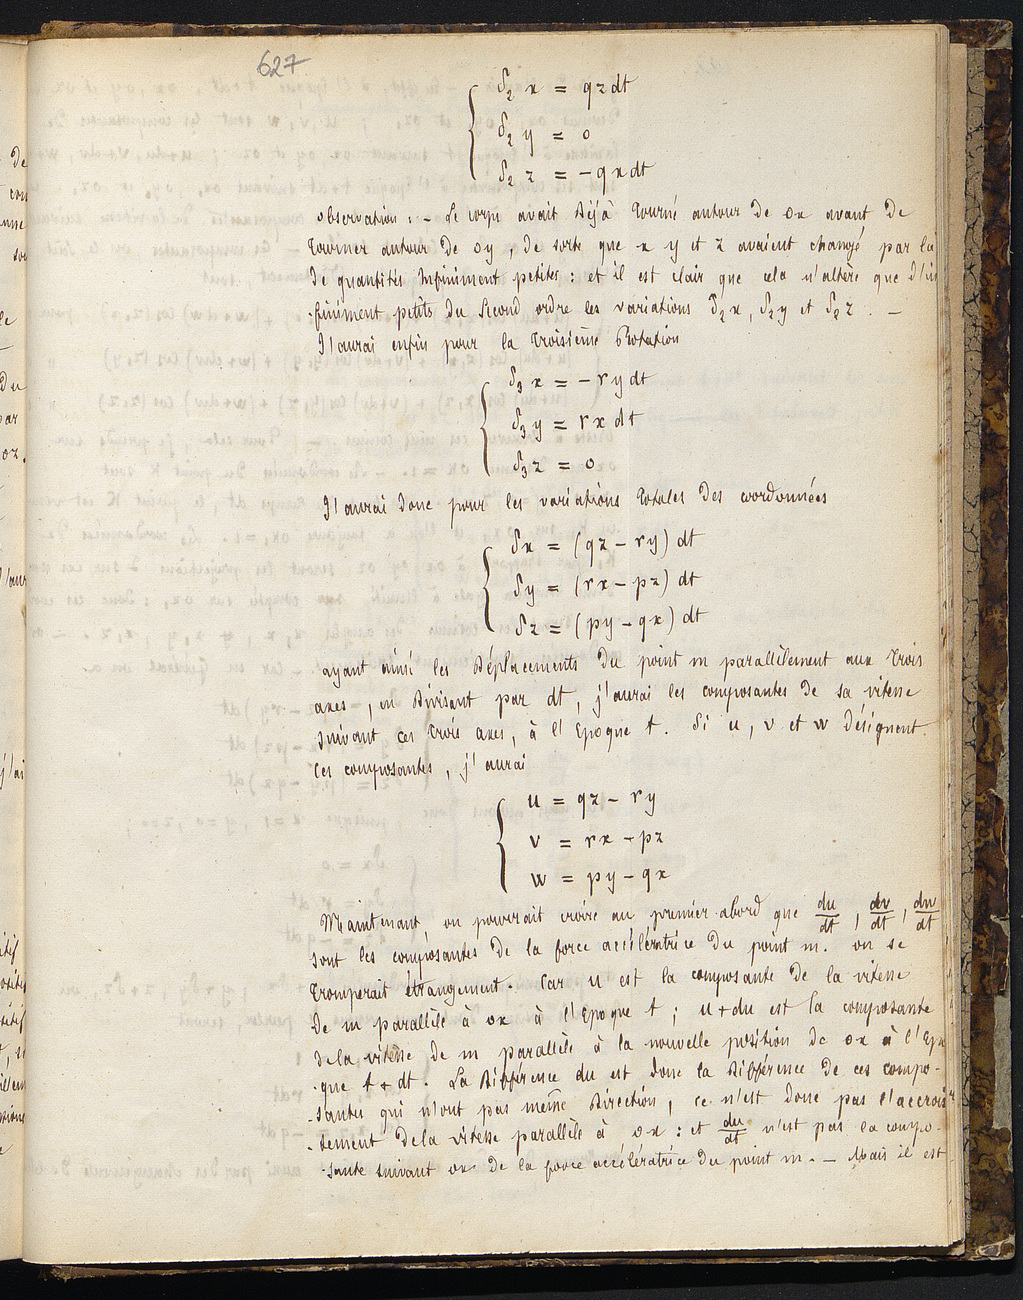 627
δ₂ x = qz dt
δ₂ y = 0
δ₂ z = - qx dt
observation : - Le corps avait déjà tourné autour de ox avant de
tourner autour de oy, de sorte que x y et z avaient changé par là
de quantités infiniment petites : et il est clair que cela n'altère que d'in
-finiment petits du second ordre les variations δ₂x, δ₂y et δ₂z . -
J'aurai enfin pour la troisième Rotation
δ₃ x = - ry dt
δ₃ y = rx dt
δ₃ z = 0
J'aurai donc pour les variations totales des coordonnées
δx = (qz - ry) dt
δy = (rx - pz) dt
δz = (py - qx) dt
ayant ainsi les déplacements du point m parallèlement aux trois
axes, en divisant par dt, j'aurai les composantes de sa vitesse
suivant ces trois axes, à l'Epoque t. Si u, v et w désignent
ces composantes, j'aurai
u = qz - ry
v = rx - pz
w = py - qx
Maintenant, on pourrait croire au premier abord que du/dt, dv/dt, dw/dt
sont les composantes de la force accélératrice du point m. on se
tromperait étrangement. Car u est la composante de la vitesse
de m parallèle à ox à l'Epoque t ; u+du est la composante
de la vitesse de m parallèle à la nouvelle position de ox à l'Epo
-que t+dt. La différence du est donc la différence de ces compo-
-santes qui n'ont pas même direction, ce n'est donc pas l'accrois
-sement de la vitesse parallèle à ox : et du/dt n'est pas la compo-
-sante suivant ox de la force accélératrice du point m. - Mais il est